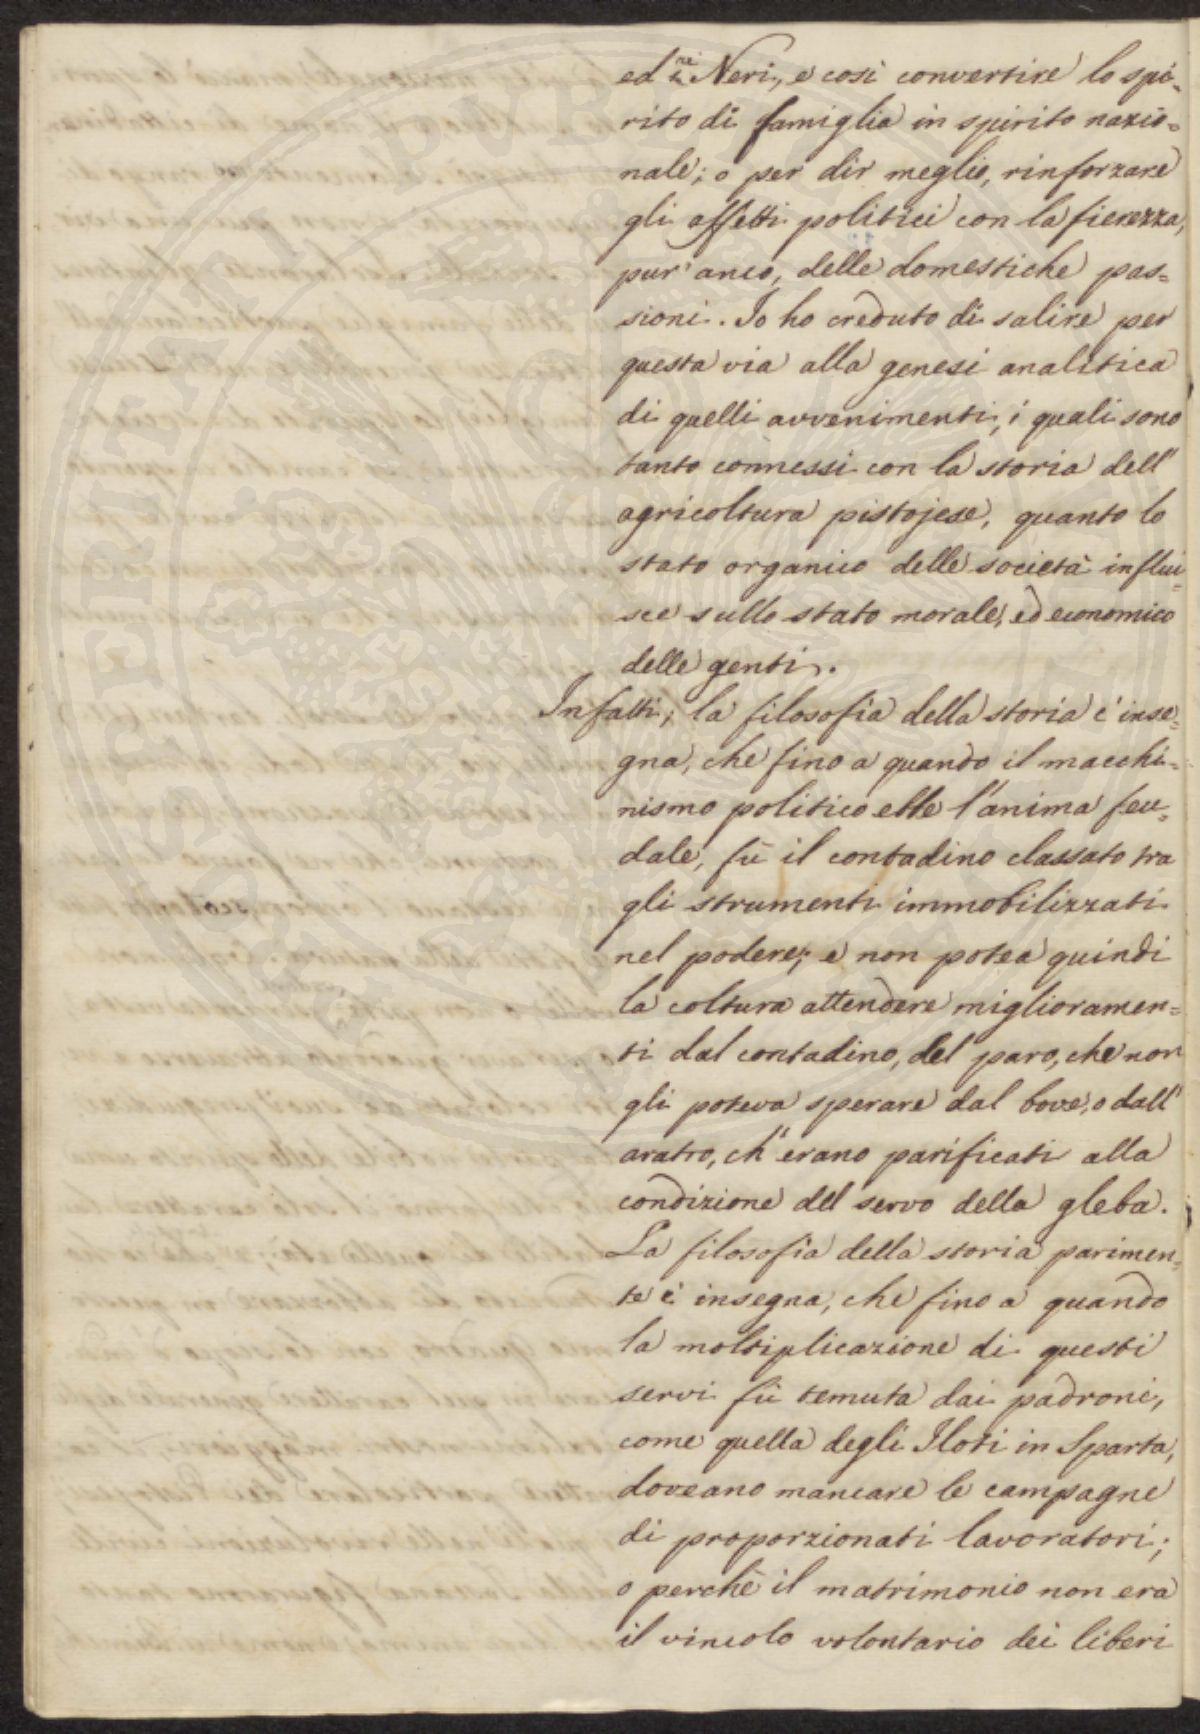 ed ne' Neri, e così convertire lo spi-
rito di famiglia in spirito nazio-
nale; o per dir meglio, rinforzare
gli affetti politici con la fierezza,
pur' anco, delle domestiche pas-
sioni. Io ho creduto di salire per
questa via alla genesi analitica
di quelli avvenimenti, i quali sono
tanto connessi con la storia dell'
agricoltura pistojese, quanto lo
stato organico delle società influi-
sce sullo stato morale, ed economico
delle genti.
Infatti, la filosofia della storia c'inse-
gna, che fino a quando il macchi-
nismo politico ebbe l'anima feu-
dale, fù il contadino classato tra
gli strumenti immobilizzati
nel podere; e non potea quindi
la coltura attendere migliioramen-
ti dal contadino, del paro, che non
gli poteva sperare dal bove, o dall'
aratro, ch'erano parificati alla
condizione del servo della gleba.
La filosofia della storia parimen-
te c'insegna, che fino a quando
la moltiplicazione di questi
servi fù temuta dai padroni,
come quella degli Iloti in Sparta,
doveano mancare le campagne
di proporzionati lavoratori;
o perchè il matrimonio non era
il vincolo volontario dei liberi